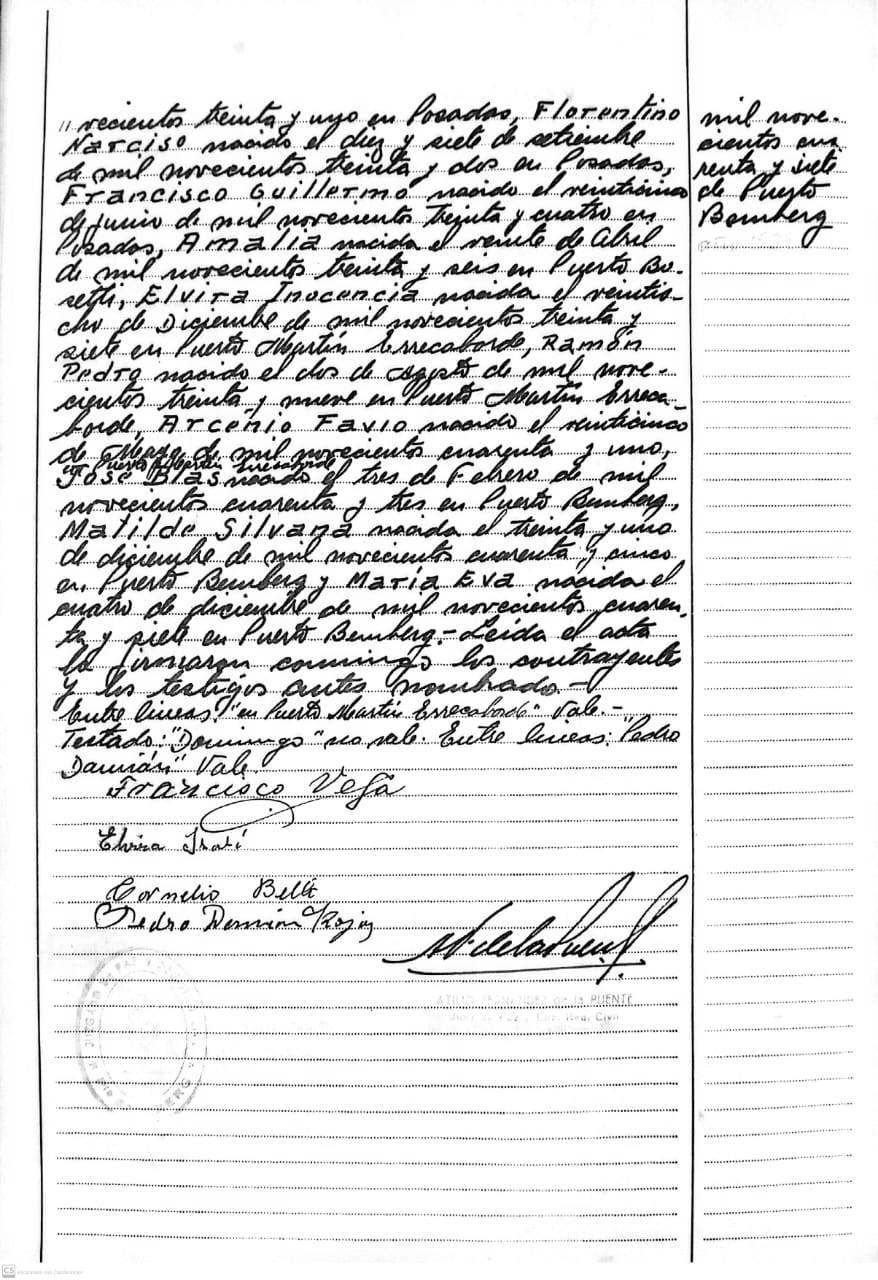 " vecientos treinta y uno en Posadas, Florentino
Narciso nacido el diez y siete de setiembre
de mil novecientos treinta y dos en Posadas,
Francisco Guillermo nacido el veinticinco
de junio de mil novecientos treinta y cuatro en
Posadas, Amalia nacida el veinte de Abril
de mil novecientos treinta y seis en Puerto Bo-
setti, Elvira Inocencia nacida el veintio-
cho de Diciembre de mil novecientos treinta y
siete en Puerto Martín Errecaborde, Ramón
Pedro nacido el dos de agosto de mil nove-
cientos treinta y nueve en Puerto Martín Erreca-
borde, Arcenio Favio nacido el veinticinco
de Mayo de mil novecientos cuarenta y uno,
en Puerto Martín Errecaborde
José Blas nacido el tres de Febrero de mil
novecientos cuarenta y tres en Puerto Bemberg,
Matilde Silvana nacida el treinta y uno
de diciembre de mil novecientos cuarenta y cinco
en Puerto Bemberg y María Eva nacida el
cuatro de diciembre de mil novecientos cuaren-
ta y siete en Puerto Bemberg.- Leída el acta
la firmaron conmigo los contrayentes
y los testigos antes nombrado.-
Entre lineas: "en Puerto Martín Errecaborde" Vale.-
Testado: "Domingo" no vale. Entre lineas: "Pedro
Damián" Vale.
Francisco Vega
Elvira
Cornelio
Pedro Damian Rojas
de la Puente
de la PUENTE
Civil
JUZGADO DE PAZ
mil nove-
cientos cua
renta y siete
de Puerto
Bemberg
CS